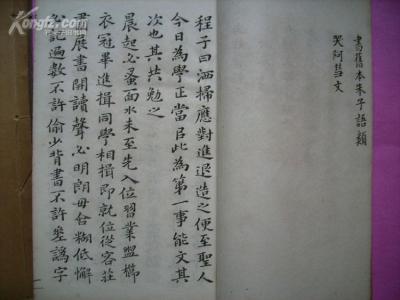 書舊本朱子語類
哭阿彗文
程子曰洒掃應對進退造之便至聖人
今日為學正當以此為第一事能文其
次也其共勉之
晨起必蚤面水未至先入位習業盥櫛
衣冠畢進揖同學相揖即就位從容莊
展書開讀聲必明朗毋含糊低懈
遍數不許偷少背書不許差譌字